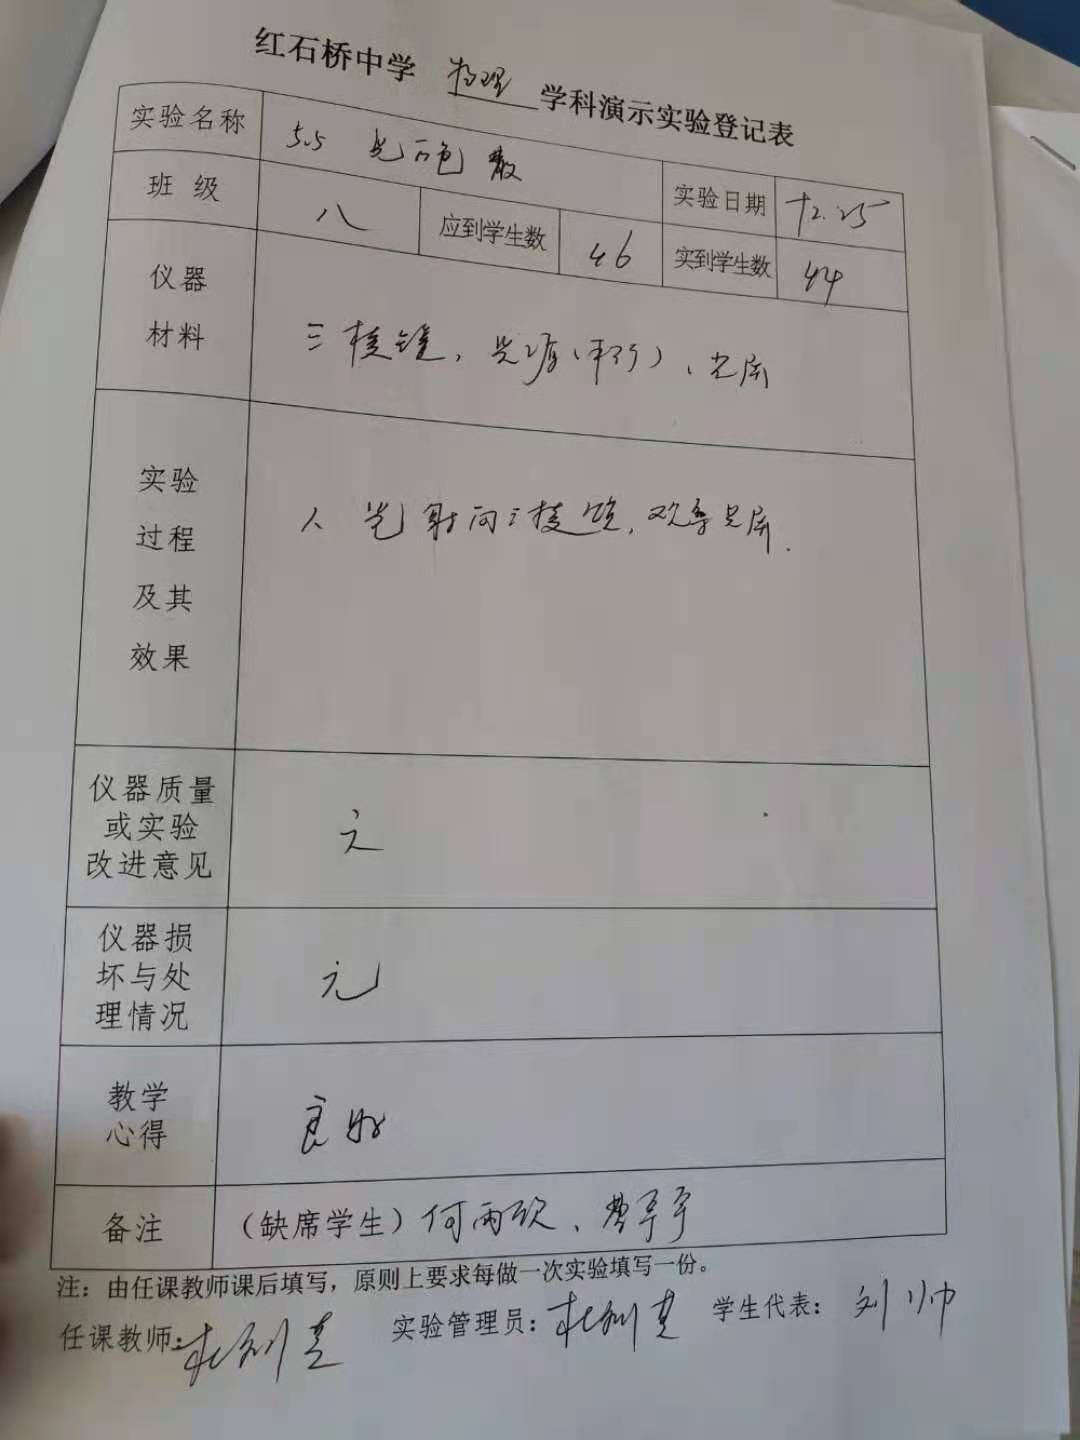 红石桥中学 物理 学科演示实验登记表
实验名称 5.5 光的色散 实验日期 12.25
班级 八 应到学生数 46 实到学生数 44
仪器
材料
三棱镜，光源（平行）、光屏
实验
过程
及其
效果
光射向三棱镜，观察光屏.
仪器质量
或实验
改进意见
无
仪器损
坏与处
理情况
无
教学
心得
良好
备注 （缺席学生）何雨欣、
注：由任课教师课后填写，原则上要求每做一次实验填写一份。
任课教师： 实验管理员： 学生代表：刘帅